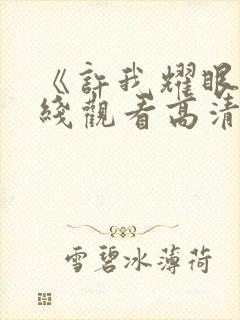 《許我耀眼
綫觀看高清
雪碧冰薄荷